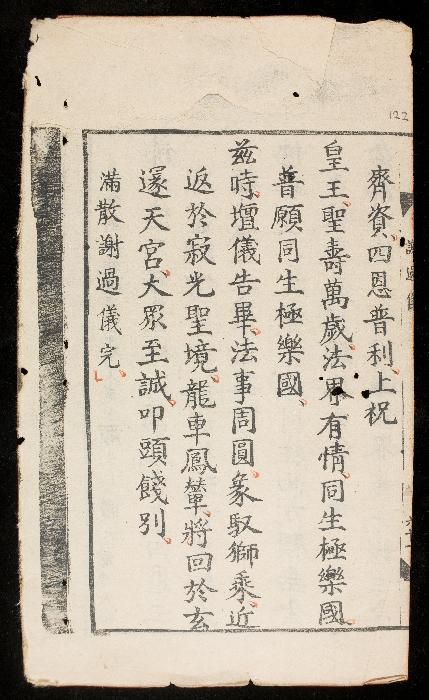 122
齊資四恩普利上祝
皇王聖壽萬歲法界有情同生極樂國
普願同生極樂國
兹時壇儀告畢法事周圓象馭獅乘近
返於寂光聖境龍車鳳輦將回於玄
邃天宮大眾至誠叩頭餞別
滿散謝過儀完